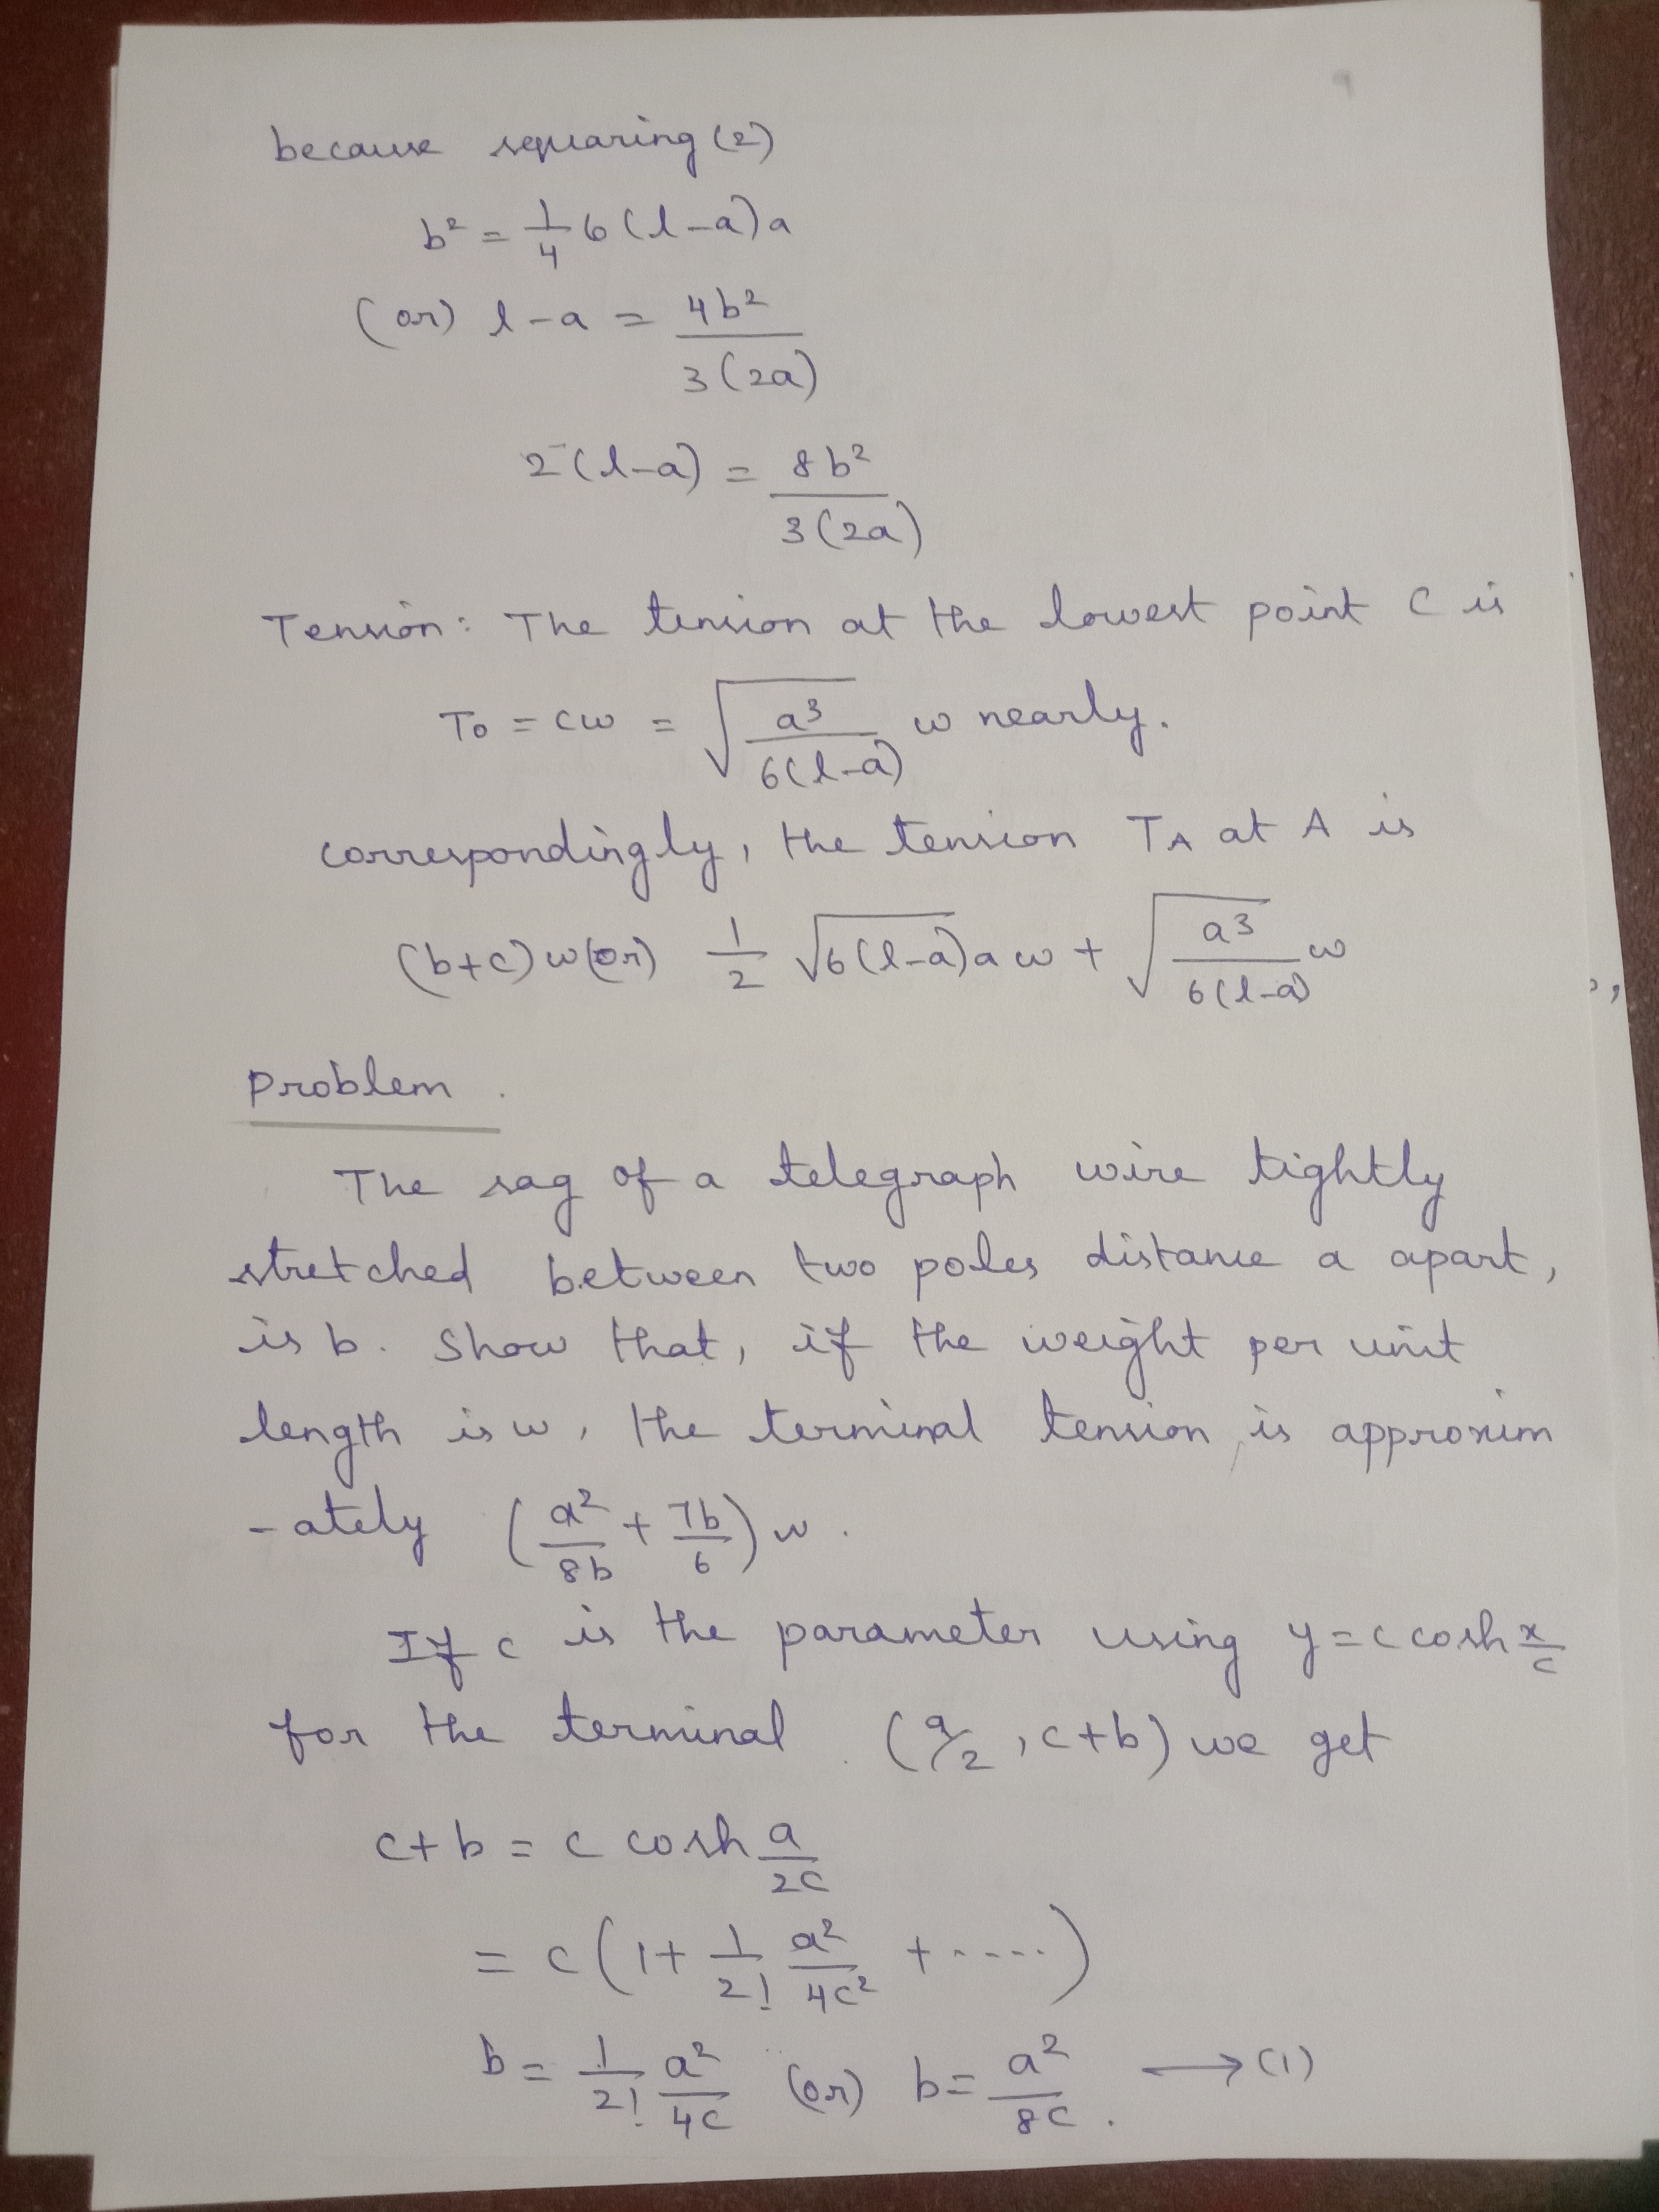 because squaring (2)
b² = 1/4 6(l-a)a
(or) l-a = 4b²/3(2a)
2(l-a) = 8b²/3(2a)
Tension: The tension at the lowest point C is
T₀ = cw = √(a³/6(l-a)) w nearly.
correspondingly, the tension T_A at A is
(b+c)w (or) 1/2 √6(l-a)a w + √(a³/6(l-a)) w
Problem.
The sag of a telegraph wire tightly
stretched between two poles distance a apart,
is b. Show that, if the weight per unit
length is w, the terminal tension is approxim
-ately (a²/8b + 7b/6) w.
If c is the parameter using y = c cosh x/c
for the terminal (a/2, c+b) we get
c+b = c cosh a/2c
= c(1 + 1/2! a²/4c² + .....)
b = 1/2! a²/4c (or) b = a²/8c. → (1)